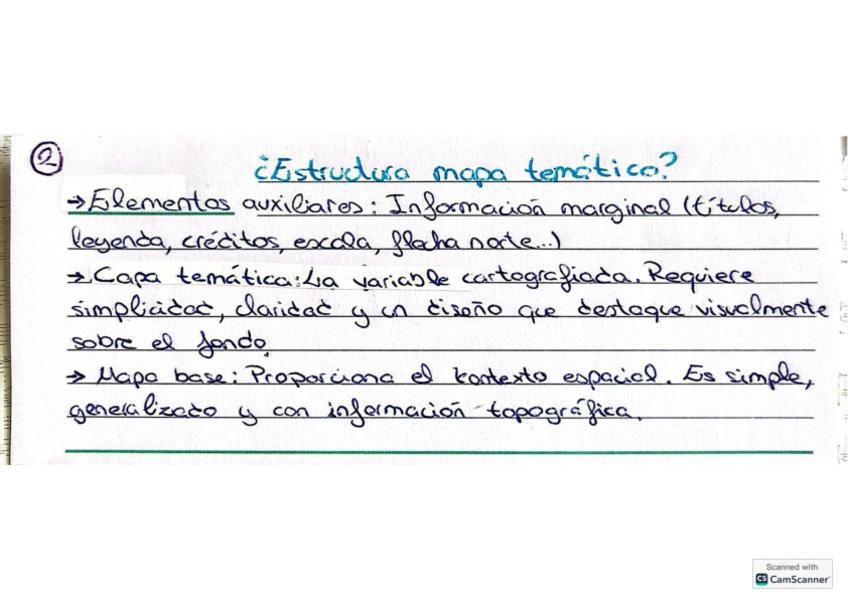 2
¿Estructura mapa temático?
→ Elementos auxiliares: Información marginal (títulos,
leyenda, créditos, escala, flecha norte...)
→ Capa temática: La variable cartografiada. Requiere
simplicidad, claridad y un diseño que destaque visualmente
sobre el fondo.
→ Mapa base: Proporciona el contexto espacial. Es simple,
generalizado y con información topográfica.
Scanned with
CS CamScanner